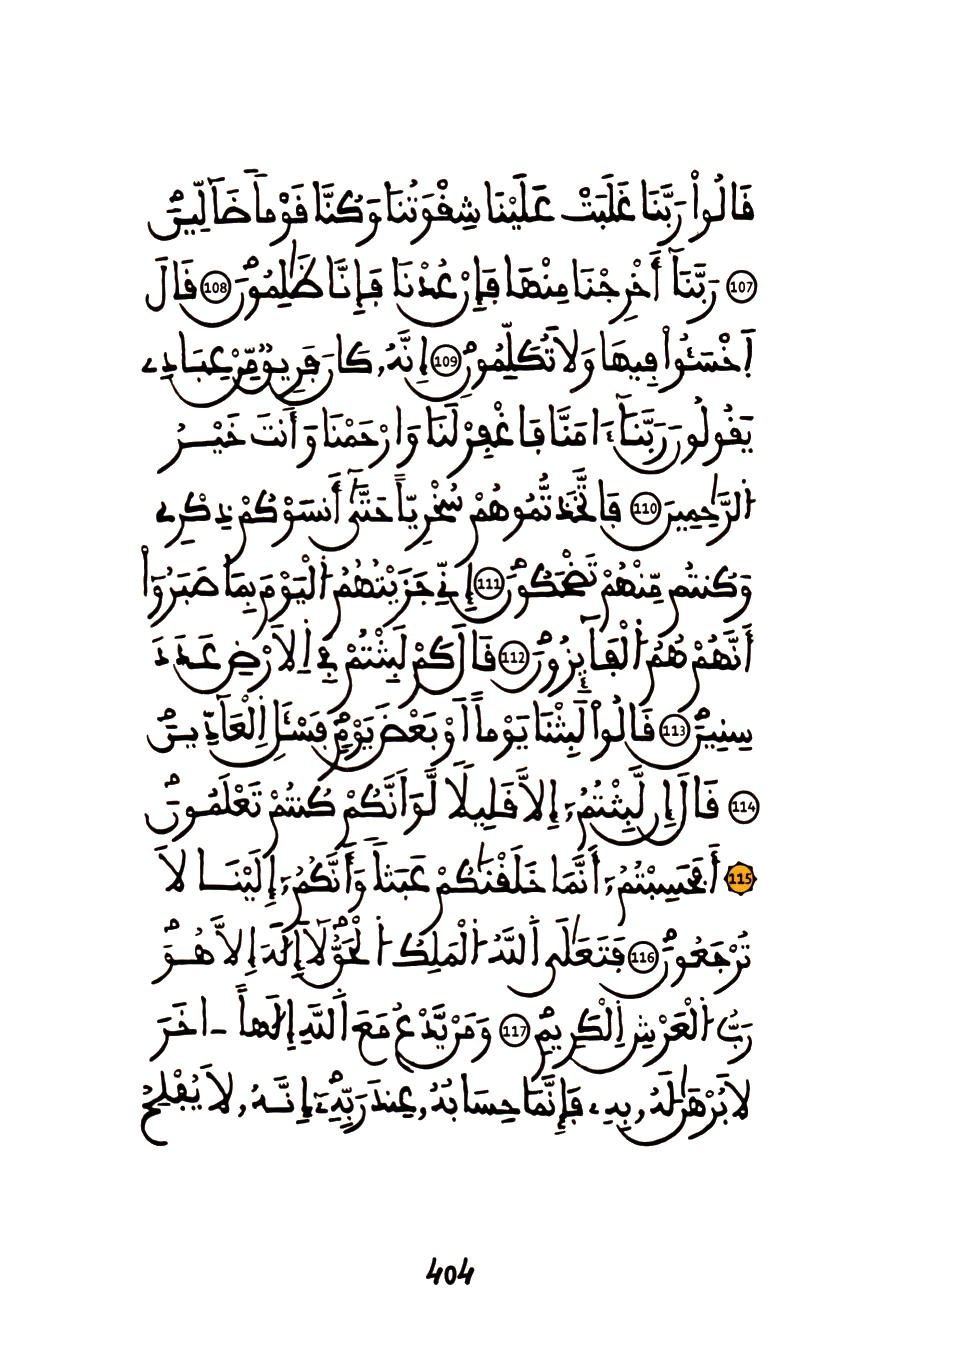 قَالُواْ رَبَّنَا غَلَبَتْ عَلَيْنَا شِقْوَتُنَا وَكُنَّا قَوْماٗ ضَآلِّينَۖ
107 رَبَّنَآ أَخْرِجْنَا مِنْهَا فَإِنْ عُدْنَا فَإِنَّا ظَٰلِمُونَۖ 108 قَالَ
اَ۪خْسَـُٔواْ فِيهَا وَلَا تُكَلِّمُونِۖ 109 إِنَّهُۥ كَانَ فَرِيقٞ مِّنْ عِبَادِے
يَقُولُونَ رَبَّنَآ ءَامَنَّا فَاغْفِرْ لَنَا وَارْحَمْنَا وَأَنتَ خَيْرُ
اُ۬لرَّٰحِمِينَ 110 فَاتَّخَذتُّمُوهُمْ سُخْرِيّاً حَتَّىٰٓ أَنسَوْكُمْ ذِكْرِے
وَكُنتُم مِّنْهُمْ تَضْحَكُونَۖ 111 إِنِّے جَزَيْتُهُمُ اُ۬لْيَوْمَ بِمَا صَبَرُوٓاْ
أَنَّهُمْ هُمُ اُ۬لْفَآئِزُونَۖ 112 قَالَ كَمْ لَبِثْتُمْ فِے اِ۬لَارْضِ عَدَدَ
سِنِينَۖ 113 قَالُواْ لَبِثْنَا يَوْماً اَوْ بَعْضَ يَوْمٖۖ فَسْـَٔلِ اِ۬لْعَآدِّينَۖ
114 قَالَ إِن لَّبِثْتُمُۥٓ إِلَّا قَلِيلاٗ لَّوَ اَنَّكُمْ كُنتُمْ تَعْلَمُونَۖ
115 أَفَحَسِبْتُمُۥٓ أَنَّمَا خَلَقْنَٰكُمْ عَبَثاٗ وَأَنَّكُمُۥٓ إِلَيْنَا لَا
تُرْجَعُونَۖ 116 فَتَعَٰلَى اَ۬للَّهُ اُ۬لْمَلِكُ اُ۬لْحَقُّۖ لَآ إِلَٰهَ إِلَّا هُوَۖ
رَبُّ اُ۬لْعَرْشِ اِ۬لْكَرِيمِۖ 117 وَمَنْ يَّدْعُ مَعَ اَ۬للَّهِ إِلَٰهاً اٰخَرَ
لَا بُرْهَٰنَ لَهُۥ بِهِۦ فَإِنَّمَا حِسَابُهُۥ عِندَ رَبِّهِۦٓۖ إِنَّهُۥ لَا يُفْلِحُ
404